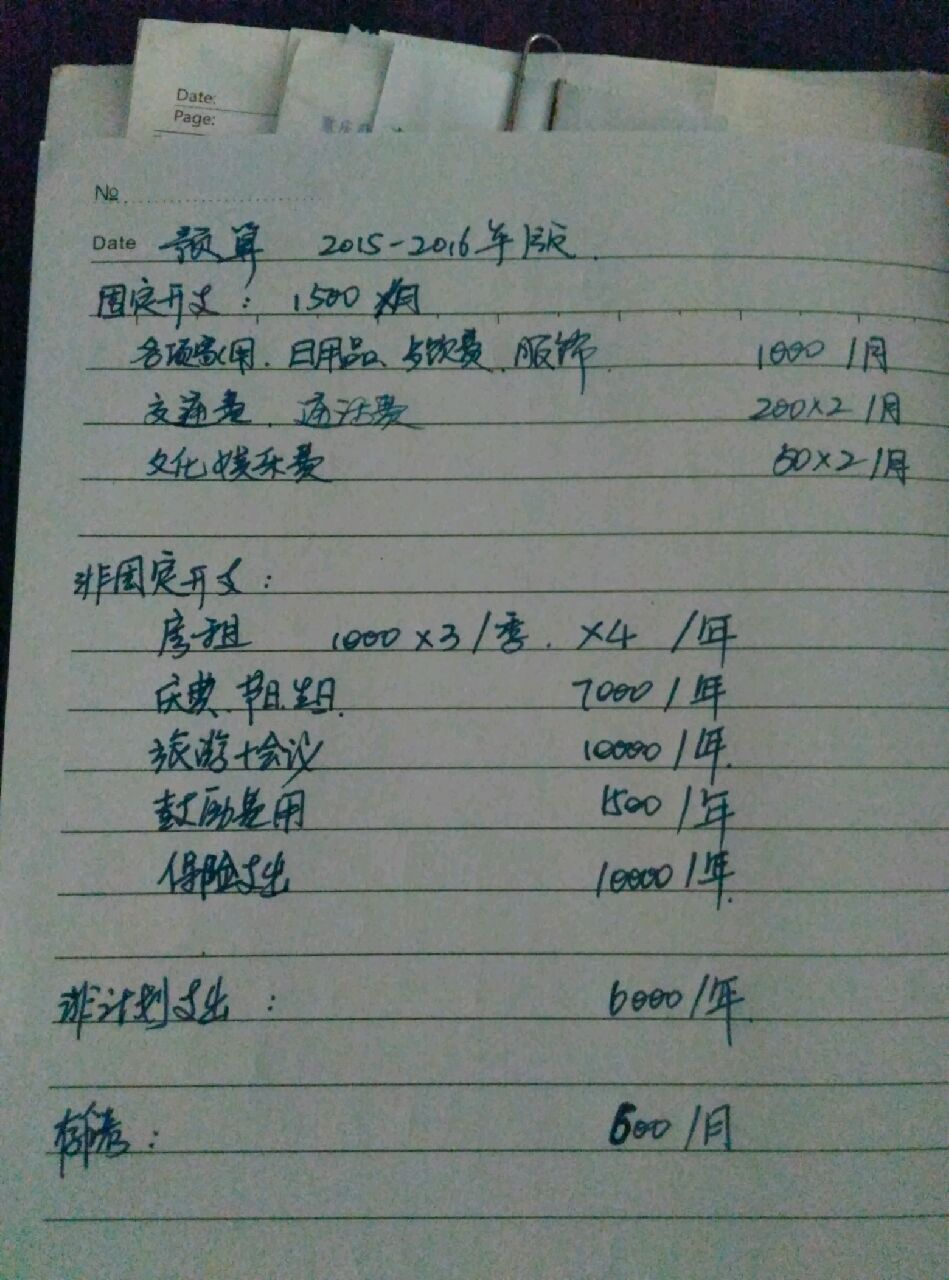 Date:
Page:
№
Date 预算 2015-2016年版.
固定开支: 1500 /月
各项家用、日用品、餐饮费、服饰 1000 /月
交通费、通话费 200×2 /月
文化娱乐费 50×2 /月
非固定开支:
房租 1000×3/季. ×4 /年
庆典、节日、生日. 7000 /年
旅游+会议 10000 /年.
鼓励费用 1500 /年
保险支出 10000 /年.
非计划支出: 6000 /年.
存储: 600 /月